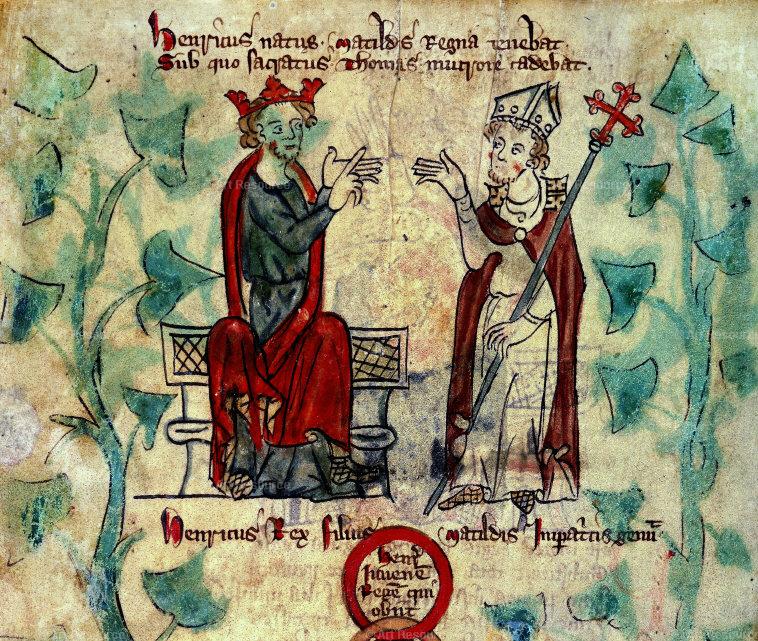 Henricus natus. Matildis Regna tenebat.
Sub quo sacratus Thomas mucrone cadebat.
Art Resource
Henricus Rex filius Matildis Imp̄atcis genuit
Henr̄
Iuuenē
Regē qui
obiit
Art Resource